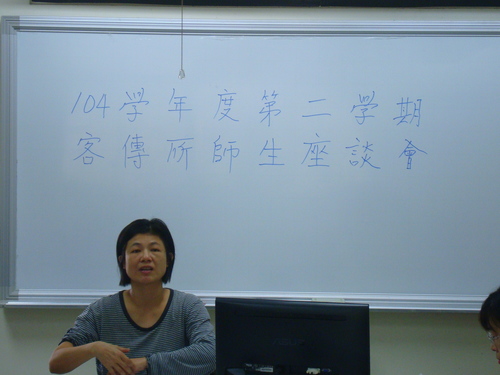 104學年度第二學期
客傳所師生座談會